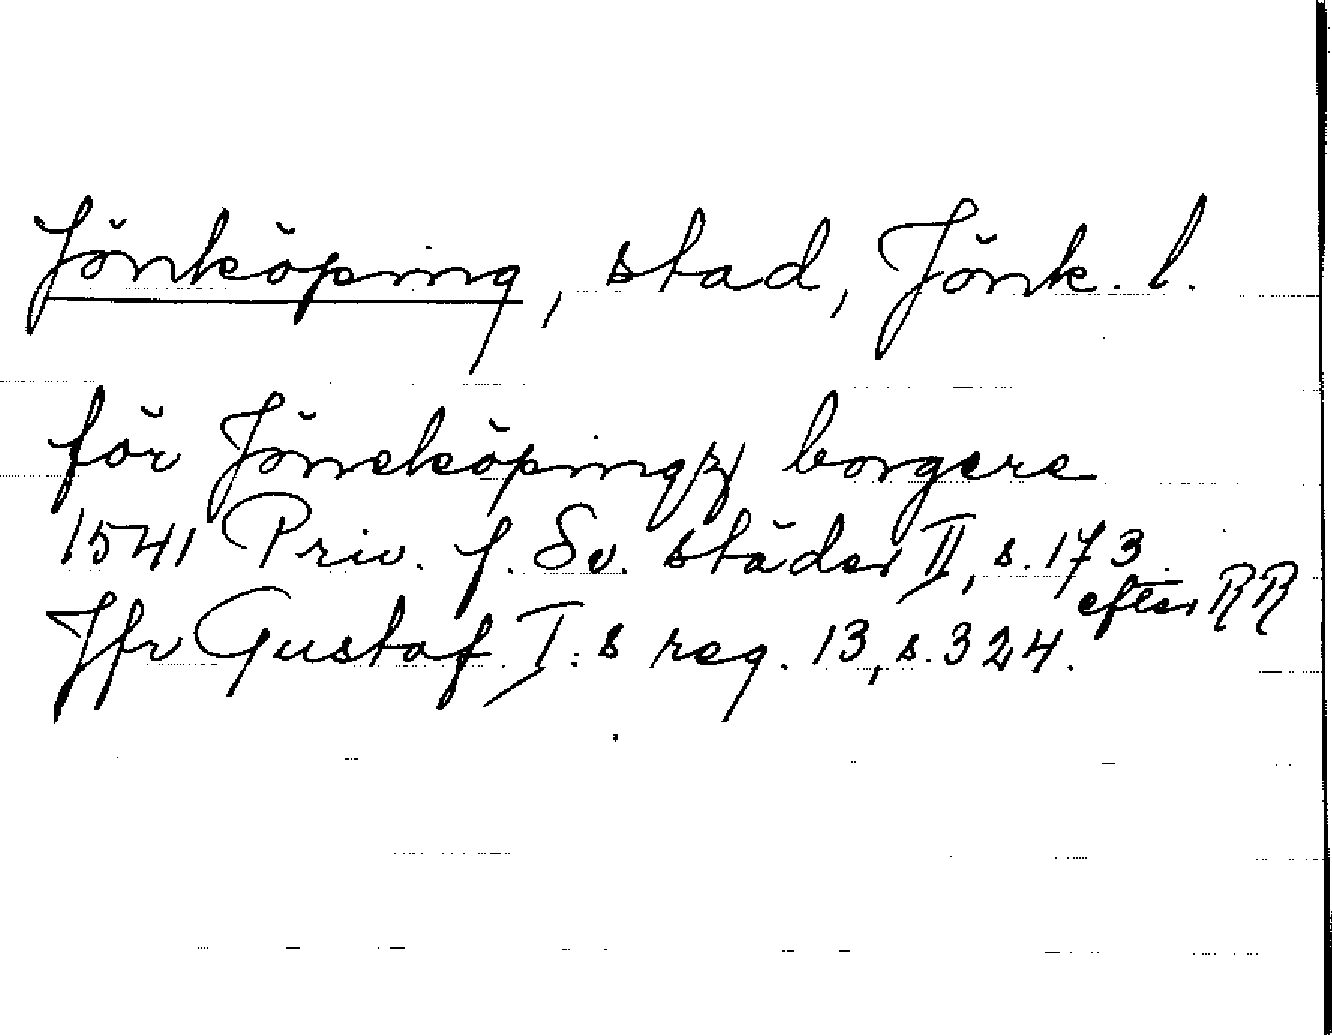 Jönköping, stad, Jönk. l.
för Jöneköpingz borgere
1541 Priv. f. Sv. städer II, s. 173
efter RR
Jfr Gustaf I:s reg. 13, s. 324.